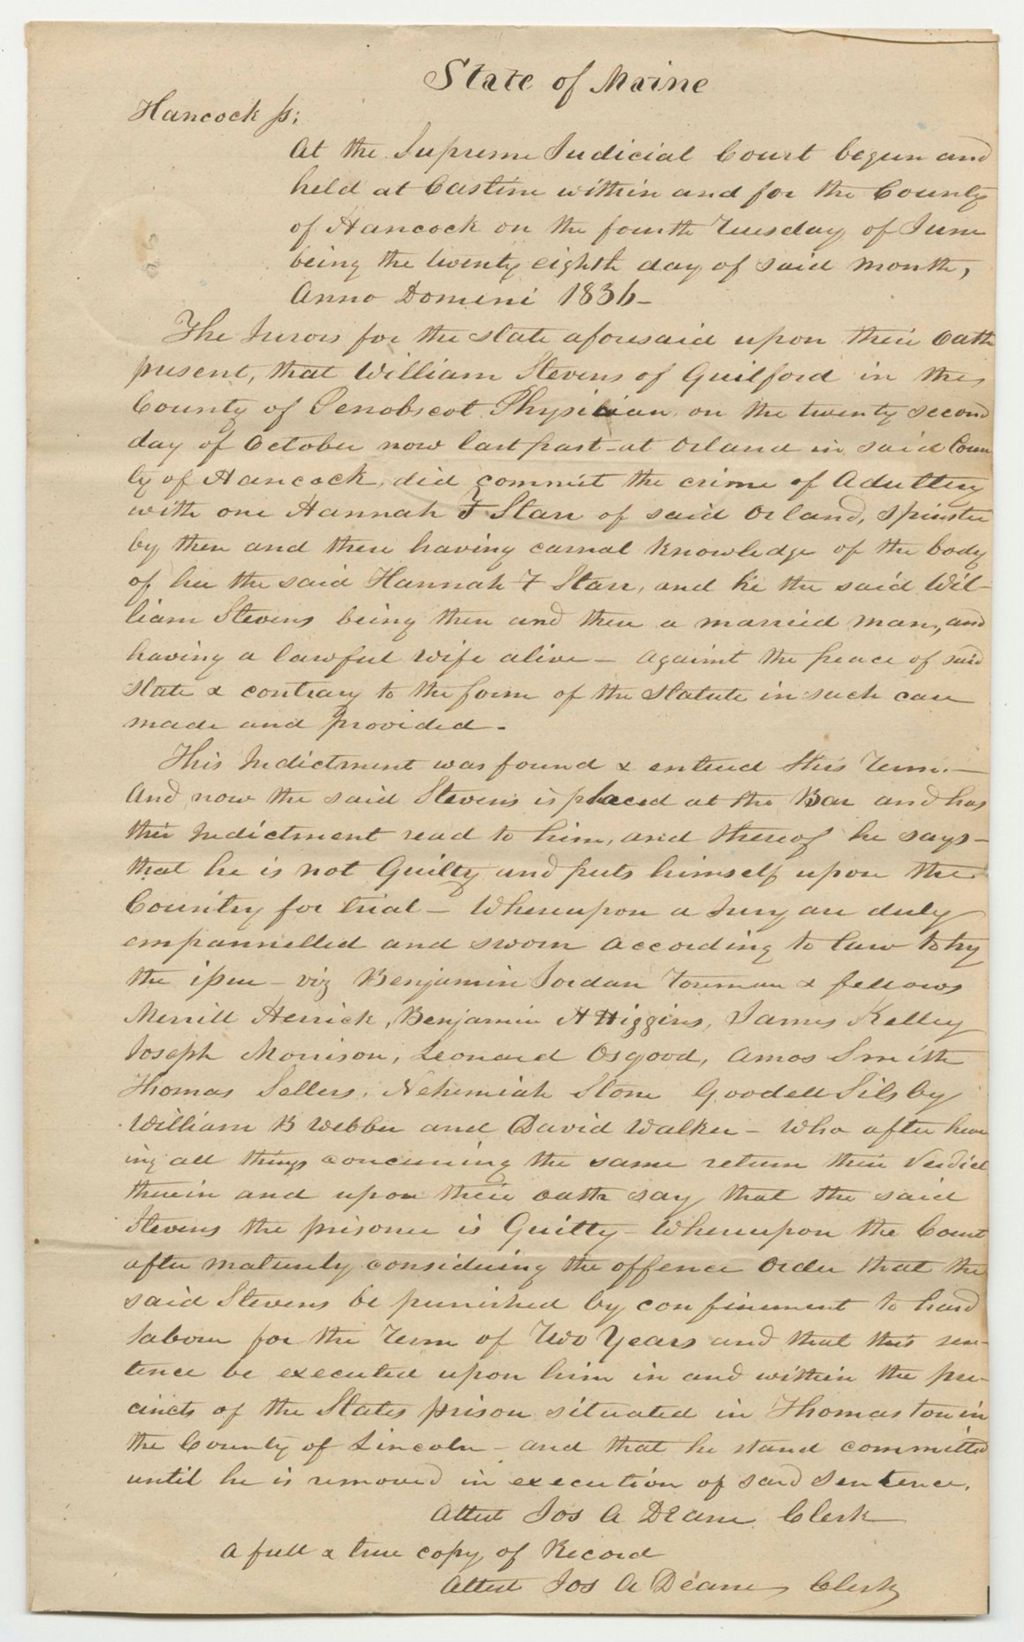 State of Maine
Hancock ss:
At the Supreme Judicial Court begun and
held at Castine within and for the County
of Hancock on the fourth Tuesday of June
being the twenty eighth day of said month,
Anno Domini 1836-
The Jurors for the state aforesaid upon their oath
present, that William Stevens of Guilford in the
County of Penobscot Physician on the twenty second
day of October now last past at Orland in said Coun
ty of Hancock, did commit the crime of Adultery
with one Hannah F Starr of said Orland, Spinster
by then and there having carnal knowledge of the body
of her the said Hannah F Starr, and he the said Wil-
liam Stevens being then and there a married man, and
having a lawful wife alive - against the peace of said
state & contrary to the form of the statute in such case
made and provided -
This Indictment was found & entered this Term. -
And now the said Stevens is placed at the Bar and has
this Indictment read to him, and thereof he says -
that he is not Guilty and puts himself upon the
Country for trial - Whereupon a Jury are duly
empannelled and sworn according to law to try
the issue - viz Benjamin Jordan Foreman & fellows
Merrill Herrick, Benjamin H Higgins, James Kelley
Joseph Morrison, Leonard Osgood, Amos Smith
Thomas Sellers, Nehemiah Stone Goodell Silsby
William B Webber and David Walker - Who after hear
ing all things concerning the same return their Verdict
therein and upon their oath say that the said
Stevens the prisoner is Guilty - Whereupon the Court
after maturely considering the offence Order that the
said Stevens be punished by confinement to hard
labour for the Term of Two Years and that this sen-
tence be executed upon him in and within the pre-
cincts of the States prison situated in Thomaston in
the County of Lincoln - and that he stand committed
until he is removed in execution of said Sentence.
Attest Jos A Deane Clerk
A full & true copy of Record
Attest Jos A Deane Clerk